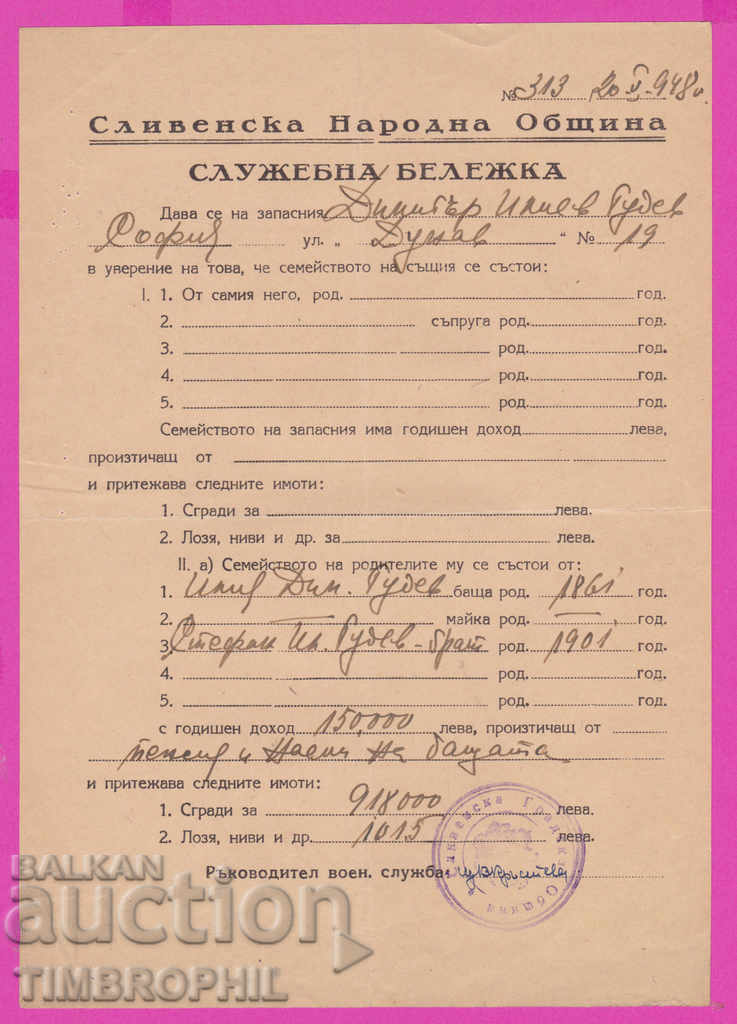 № 313 20 V. 948 г.
Сливенска Народна Община
СЛУЖЕБНА БЕЛЕЖКА
Дава се на запасния Димитър Илиев Гудев
София ул. „ Дунав “ № 19
в уверение на това, че семейството на същия се състои:
I. 1. От самия него, род. год.
2. съпруга род. год.
3. род. год.
4. род. год.
5. род. год.
Семейството на запасния има годишен доход лева,
произтичащ от
и притежава следните имоти:
1. Сгради за лева.
2. Лозя, ниви и др. за лева.
II. а) Семейството на родителите му се състои от:
1. Илия Дим. Гудев баща род. 1861 год.
2. — майка род. — год.
3. Стефан Ил. Гудев - брат род. 1901 год.
4. род. год.
5. род. год.
с годишен доход 150,000 лева, произтичащ от
пенсия и наеми на бащата
и притежава следните имоти:
1. Сгради за 918000 лева.
2. Лозя, ниви и др. 1015 лева.
Ръководител воен. служба:
Сливенска Градска Община
BALKAN
auction
TIMBROPHIL